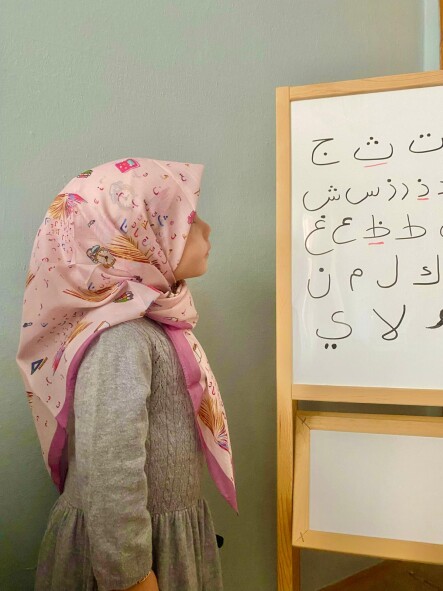 ت ث ج
ذ ر ز س ش
ط ظ ع غ
ك ل م ن
لا ي